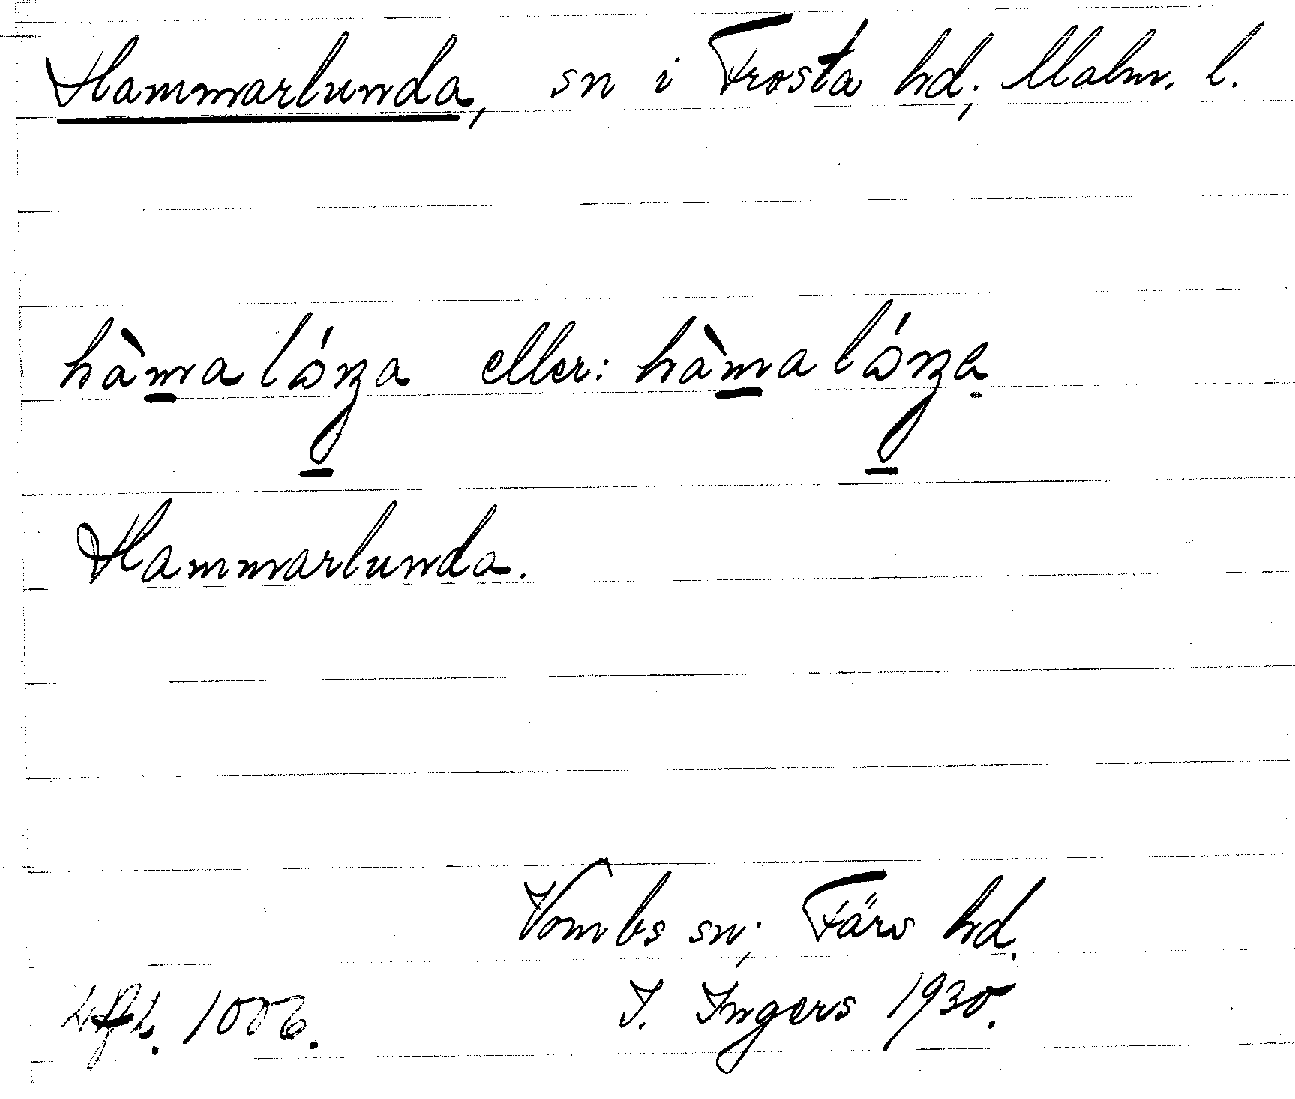 Hammarlunda, sn i Frosta hd, Malm. l.
hàma lóŋa eller: hàma lóŋa
Hammarlunda.
Vombs sn, Färs hd.
I. Ingers 1930.
1006.